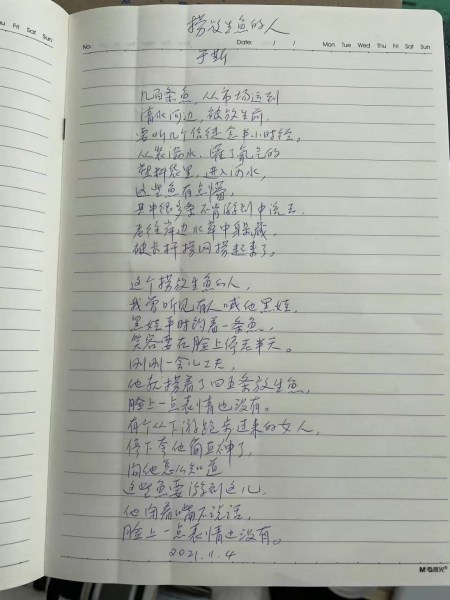 Fri Sat Sun
捞放生鱼的人
No. Date: / / Mon Tue Wed Thu Fri Sat Sun
于斯
几百条鱼,从市场运到
清水河边,被放生前,
要听几个信徒念半小时经。
从装满水、灌了氧气的
塑料袋里,进入河水,
这些鱼有点懵,
其中很多条不肯游到中流去,
老往岸边水草中躲藏,
被长杆捞网捞起来了。
这个捞放生鱼的人,
我曾听见有人喊他黑娃,
黑娃平时钓着一条鱼,
笑容要在脸上停老半天。
刚刚一会儿工夫,
他就捞着了四五条放生鱼,
脸上一点表情也没有。
有个从下游跑步过来的女人,
停下夸他简直神了,
问他怎么知道
这些鱼要游到这儿,
他闭着嘴不说话,
脸上一点表情也没有。
2021.11.4
M&G晨光